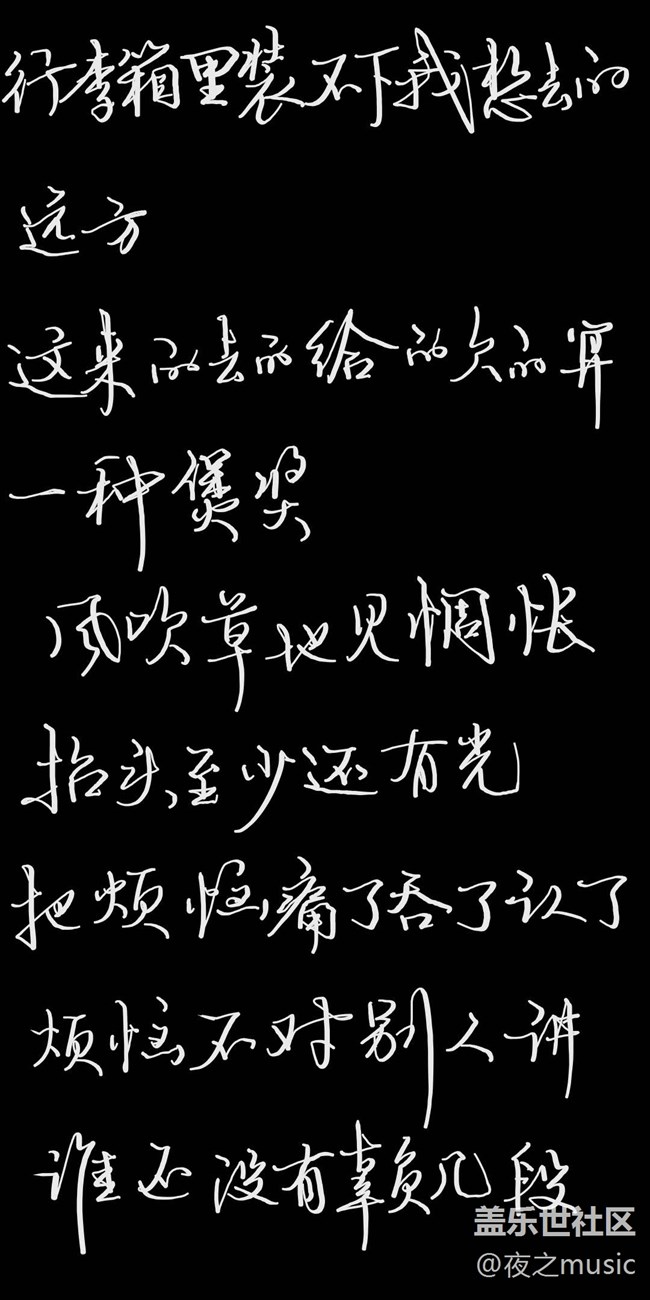 行李箱里装不下我想去的
远方
这来的去的给的欠的算
一种煲奖
风吹草地见惆怅
抬头至少还有光
把烦恼痛了吞了认了
烦恼不对别人讲
谁还没有辜负几段
盖乐世社区
@夜之music